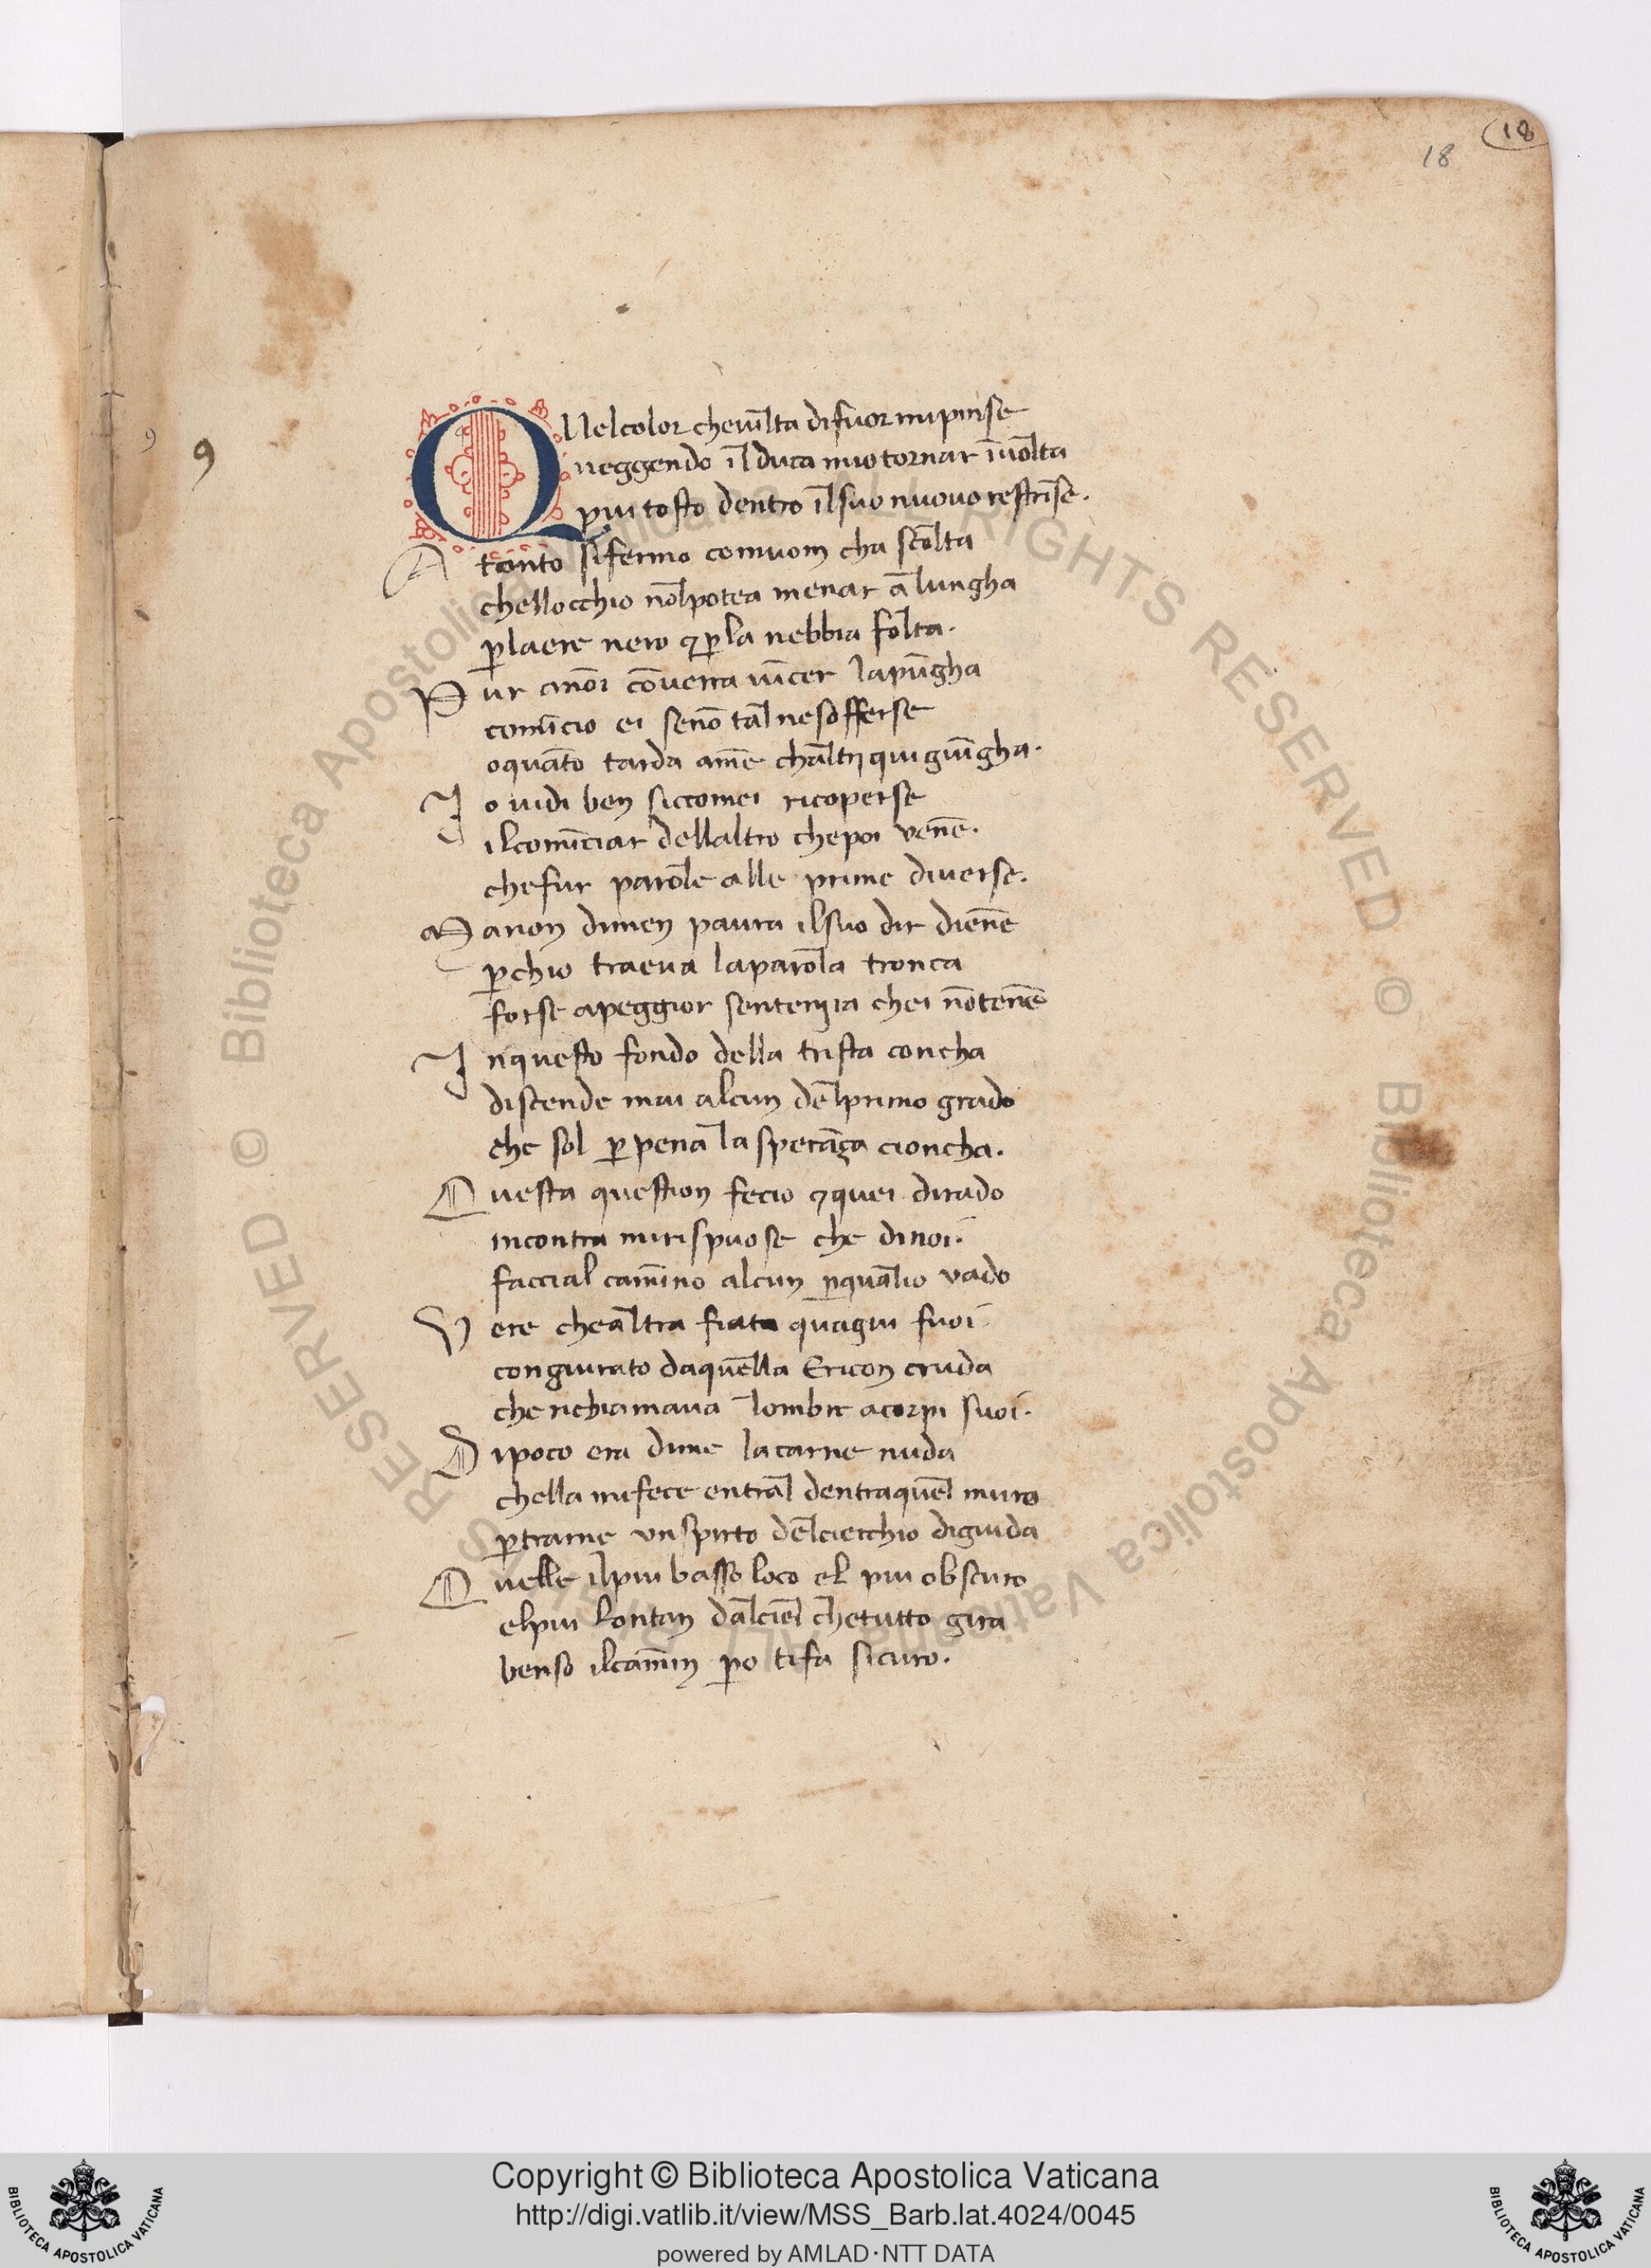 18
18
9
9
QUelcolor cheuilta difuor mipinse
ueggendo il duca mio tornar ĩuolta
piu tosto dentro ilsuo nuouo restrinse.
A tento sifermo comuom cha scolta
chellocchio nõlpotea menar a lungha
ꝑlaere nero ⁊ ꝑ la nebbia folta.
P ur anoi cõuerra uĩcer lapũgha
comĩcio ei senõ tal nesofferse
oquãto tarda ame chaltri qui guĩgha.
I o uidi ben siccomei ricoperse
ilcomĩciar dellaltro chepoi venẽ.
chefur parole alle prime diuerse.
M anon dimen paura ilsuo dir dienẽ
ꝑchio traeua laparola tronca
forse apeggior sentenzia chei nõtenẽ
I nquesto fondo della trista concha
discende mai alcun del primo grado
che sol ꝑ pena la sperãza cioncha.
Q uesta question fecio ⁊ quei dirado
incontra mirispuose che dinoi.
faccial camĩno alcun ꝑqualio vado
V ere chealtra fiata quagiu fuoi
congiurato daquella Ericon cruda
che richiamaua lombre acorpi suoi.
D ipoco era dime lacarne nuda
chella mifece entral dentraquel muro
ꝑtrarne un spirto delcierchio digiuda
Q uelle ilpiu basso loco el piu obscuro
elpiu lontan dalciel chetutto gira
benso ilcamĩn ꝑo tifa sicuro.
© Biblioteca Apostolica Vaticana ALL RIGHTS RESERVED © Biblioteca Apostolica Vaticana ALL RIGHTS RESERVED
Copyright © Biblioteca Apostolica Vaticana
http://digi.vatlib.it/view/MSS_Barb.lat.4024/0045
powered by AMLAD·NTT DATA
BIBLIOTECA APOSTOLICA VATICANA
BIBLIOTECA APOSTOLICA VATICANA